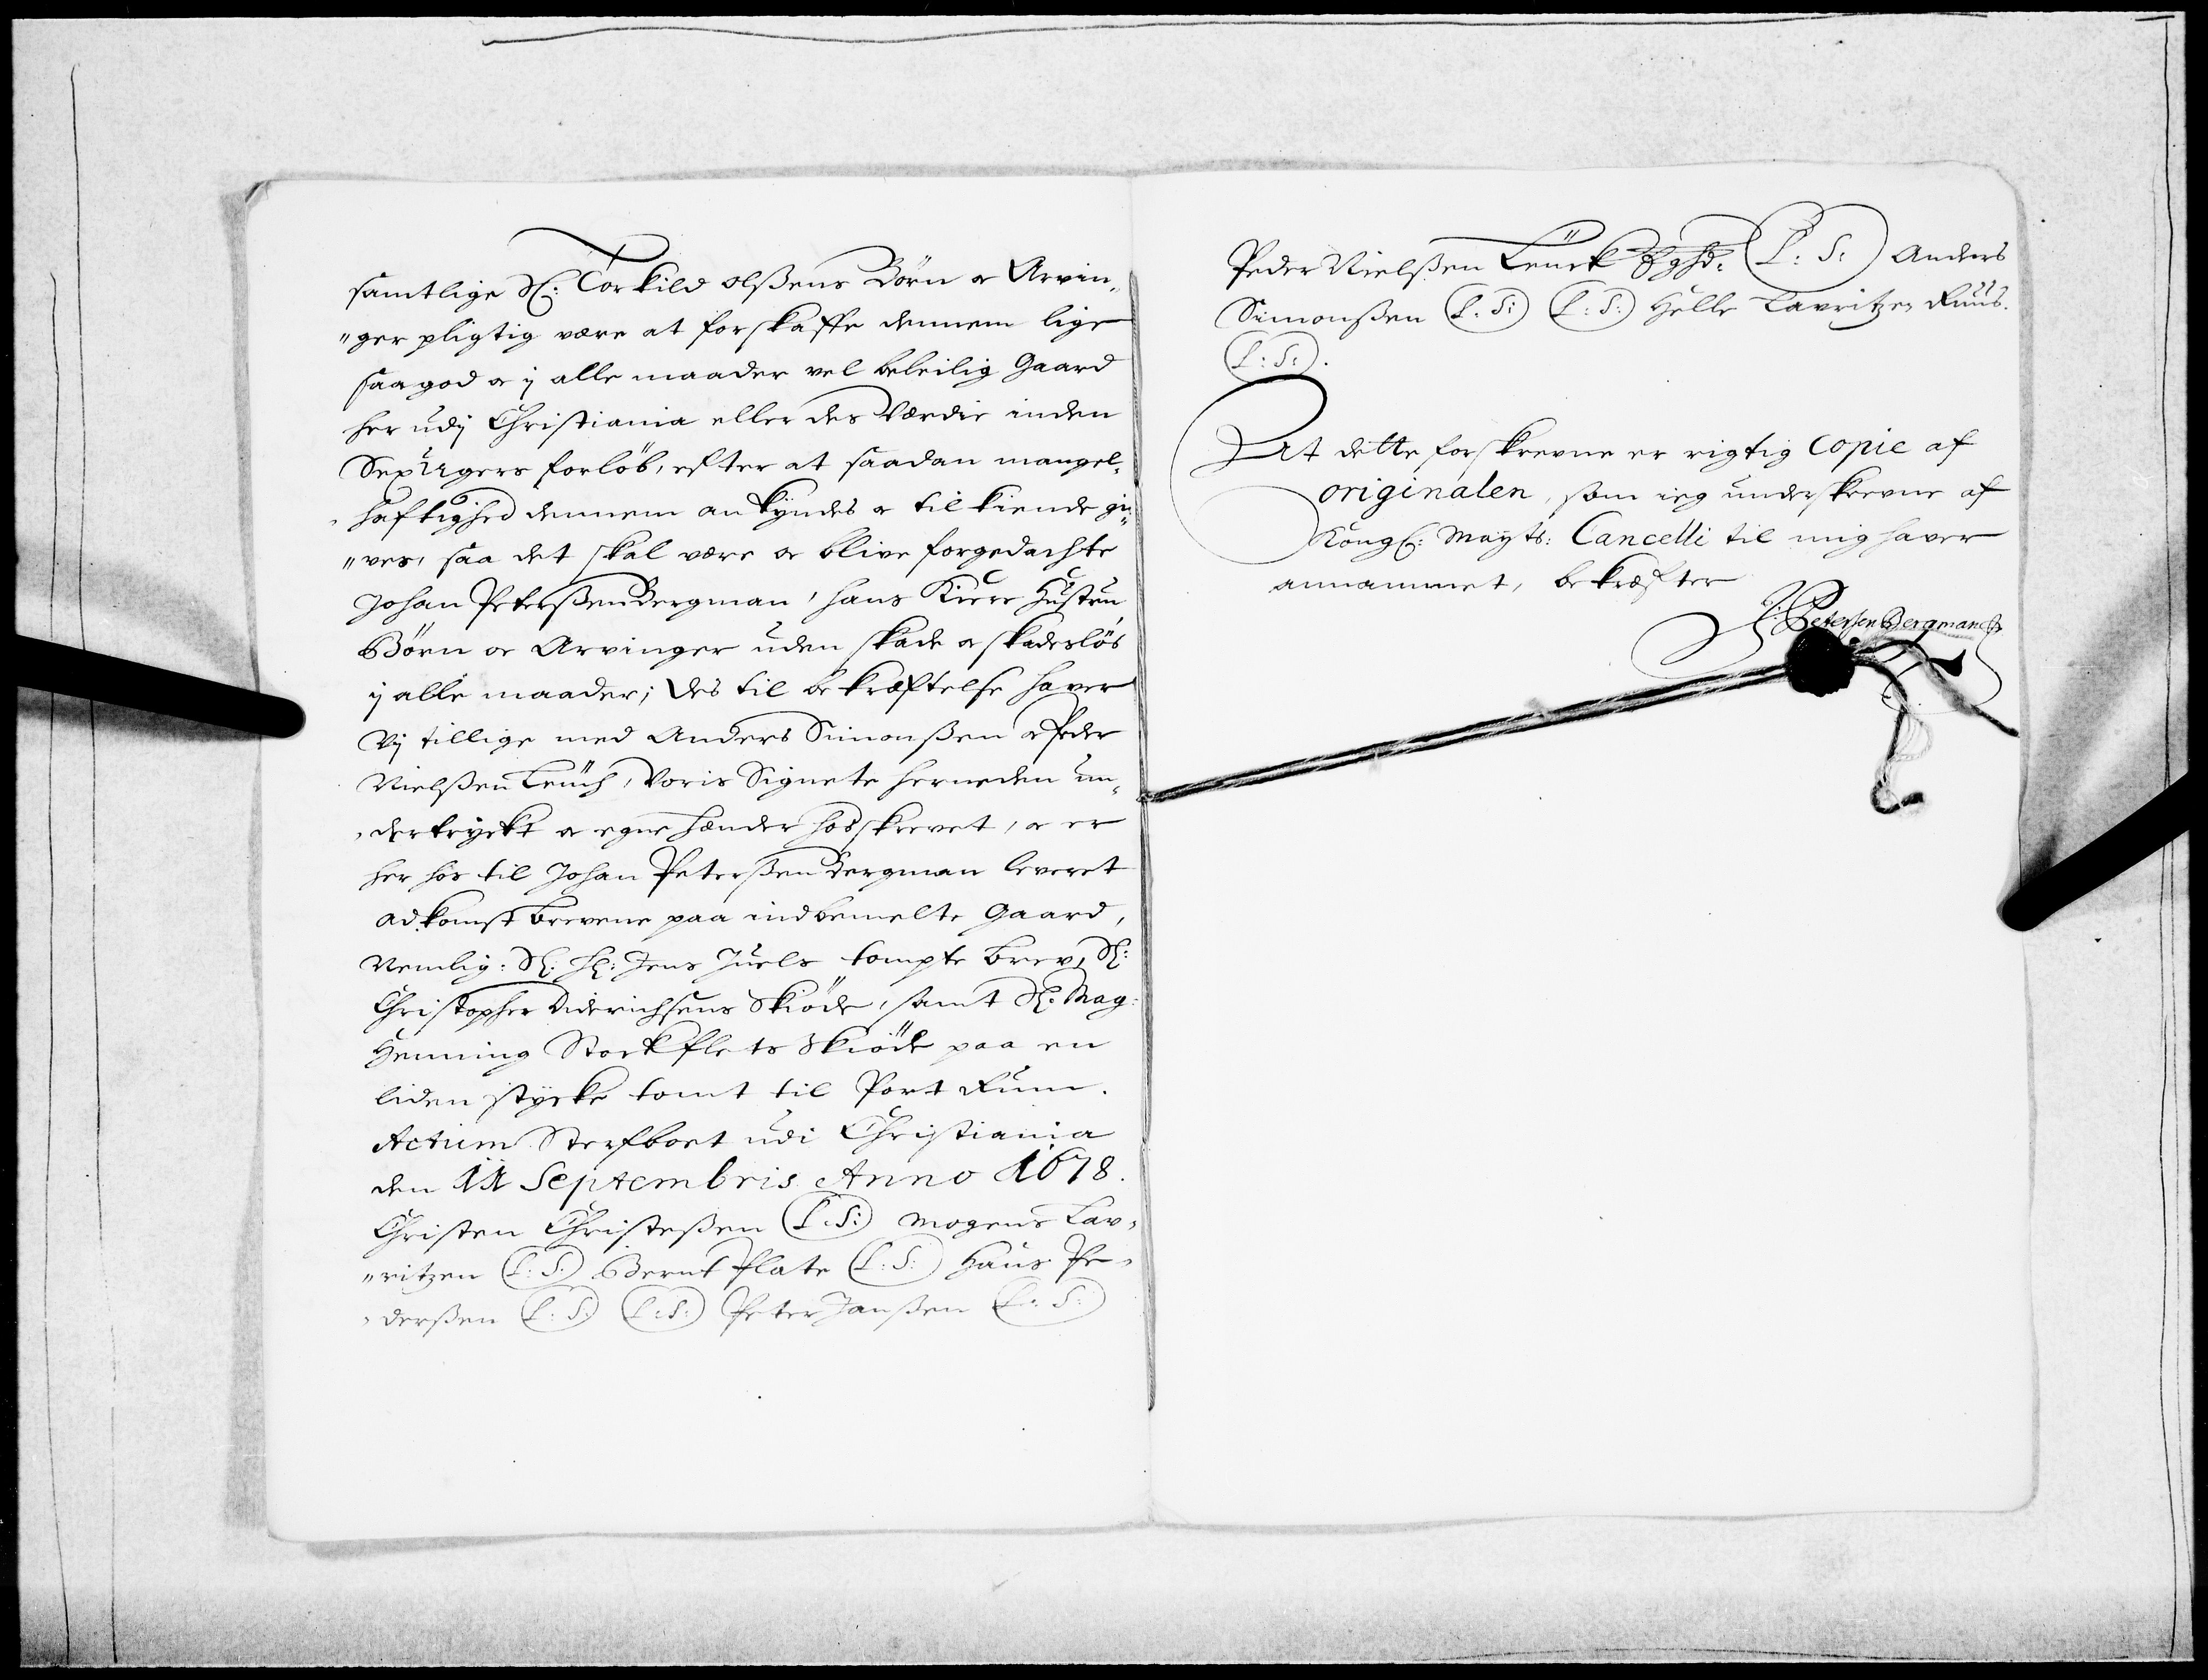 samtlige Sl: Torkild olßens Börn oc Arvin„
„ger pligtig være at forskaffe dennem lige
saa god oc ij alle maader vel beleilig Gaard
her udj Christiania eller des Værdie inden
Sex Ugers forlöb, efter at saadan mangel„
„haftighed dennem ankyndes oc til kiende gi„
„ves, saa det skal være oc blive forgedachte
Johan Peterßen Bergman, hans Kiere Hustru
Börn oc Arvinger uden skade oc skadeslös
ij alle maader; Des til bekræftelse haver
Vij tillige med Anders Simonßen oc Peder
Nielßen Leuch, Voris Signete herneden un„
„dertrykt oc egne hænder hosskrevet, oc er
her hos til Johan Peterßen Bergman leveret
adkomst brevene paa indbemelte Gaard,
Nemlig: Sl: Hl: Jens Juels tompte brev, Sl:
Christopher Diderichsens Skiöde, samt Sl: Mag:
Henning Stockflets Skiöde paa en
liden stycke tomt til Port Rum.
Actum Sterfboet udi Christiania
den 11 Septembris Anno 1678.
Christen Christeßen (L:S:) Mogens Lav„
„ritzen (L:S:) Bernt Plate (L:S:) Hans Pe„
„derßen (L:S:) (L:S:) Peter Janßen (L:S:)
Peder Nielßen Leuck (L:S:) Anders
Simonßen (L:S:) (L:S:) Helle Lavritzen Ruus.
(L:S:).
At dette forskrevne er rigtig Copie af
originalen, som ieg underskrevne af
Kongl: Mayts: Cancelli til mig haver
annammet, bekræfter
J: Petersen Bergman